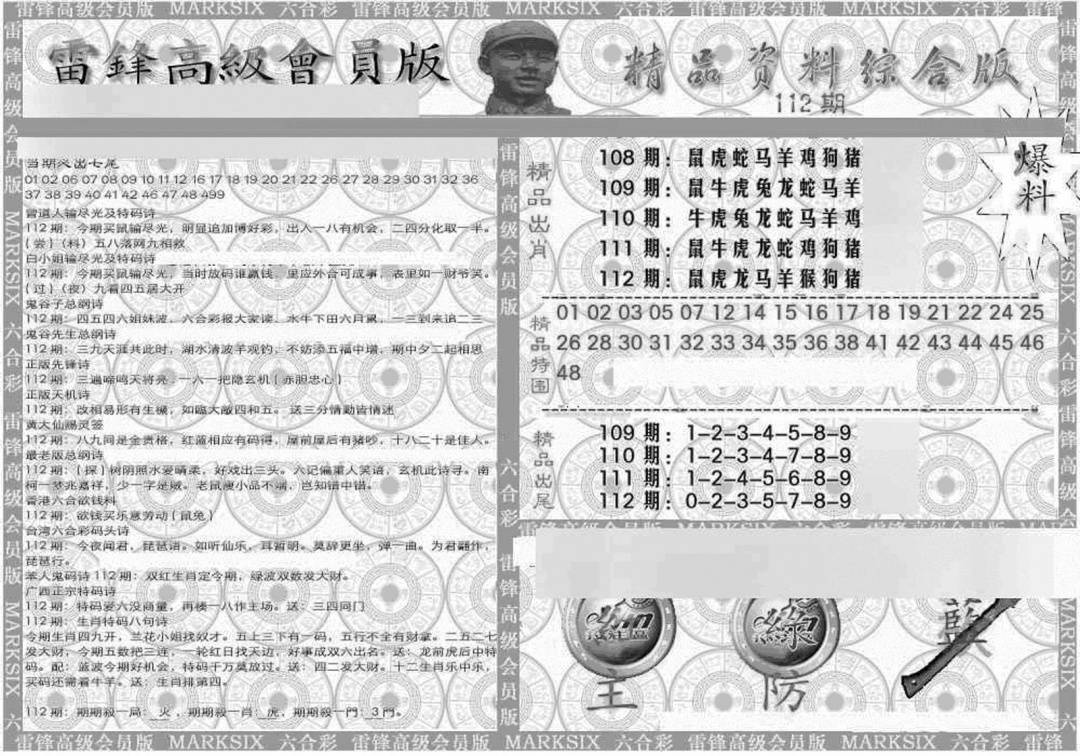 雷锋高级会员版 MARKSIX 六合彩 雷锋高级会员版 MARKSIX 六合彩 雷锋高级会员版 MARKSIX 六合彩 雷锋
雷鋒高級會員版
精品資料綜合版
112期
爆料
01 02 06 07 08 09 10 11 12 16 17 18 19 20 21 22 26 27 28 29 30 31 32 36
37 38 39 40 41 42 46 47 48 499
曾道人输尽光及特码诗
112期：今期买鼠输尽光，明显追加博好彩，出入一八有机会，二四分化取一半。
(尝)(料) 五八落网九相救
白小姐输尽光及特码诗
112期：今期买鼠输尽光，当时放码谁赢钱，里应外合可成事，表里如一财爷笑。
(过)(夜) 九看四五居大开
鬼谷子总纲诗
112期：四五四六姐妹波，六合彩报大家读，水牛下田六月累，一三到来追二三
鬼谷先生总纲诗
112期：三九天涯共此时，湖水清波羊观钓，不妨添五福中增，期中夕二起相思
正版先锋诗
112期：三遍啼鸣天将亮，一六一把隐玄机(赤胆忠心)
正版天机诗
112期：改相易形有生機，如臨大敵四和五。 送三分情勤皆情迷
黄大仙赐灵签
112期：八九同是金贵格，红蓝相应有码得，屋前屋后有猪吵，十八二十是佳人。
最老版总纲诗
112期：(探)树阴照水爱晴柔，好戏出三头。六记偏重人笑语，玄机此诗寻。南
柯一梦兆嘉祥，少一字是贼。老鼠瘦小品不端，岂知错中错。
香港六合欲钱料
112期：欲钱买乐意劳动(鼠兔)
台湾六合彩码头诗
112期：今夜闻君，琵琶语。如听仙乐，耳暂明。莫辞更坐，弹一曲。为君翻作，
琵琶行。
苯人鬼码诗 112期：双红生肖定今期，绿波双数发大财。
广西正宗特码诗
112期：特码爱六没商量，再楼一八作主场。送：三四同门
112期：生肖特码八句诗
今期生肖四九开，兰花小姐找奴才。五上三下有一码，五行不全有财拿。二五二七
发大财，今期五数把三连，一轮红日找天边，好事成双六出名。送：龙前虎后中特
码。配：蓝波今期好机会，特码千万莫放过。送：四二发大财。十二生肖乐中乐，
买码还需看牛羊。送：生肖排第四。
112期：期期殺一局：火，期期殺一肖：虎，期期殺一門：3門。
精品出肖
108期：鼠虎蛇马羊鸡狗猪
109期：鼠牛虎兔龙蛇马羊
110期：牛虎兔龙蛇马羊鸡
111期：鼠牛虎龙蛇鸡狗猪
112期：鼠虎龙马羊猴狗猪
精品特围
01 02 03 05 07 12 14 15 16 17 18 19 21 22 24 25
26 28 30 31 32 33 34 35 36 38 41 42 43 44 45 46
48
精品出尾
109期：1-2-3-4-5-8-9
110期：1-2-3-4-7-8-9
111期：1-2-4-5-6-8-9
112期：0-2-3-5-7-8-9
王
防
雷锋高级会员版 MARKSIX 六合彩 雷锋高级会员版 MARKSIX 六合彩 雷锋高级会员版 MARKSIX 六合彩 雷锋